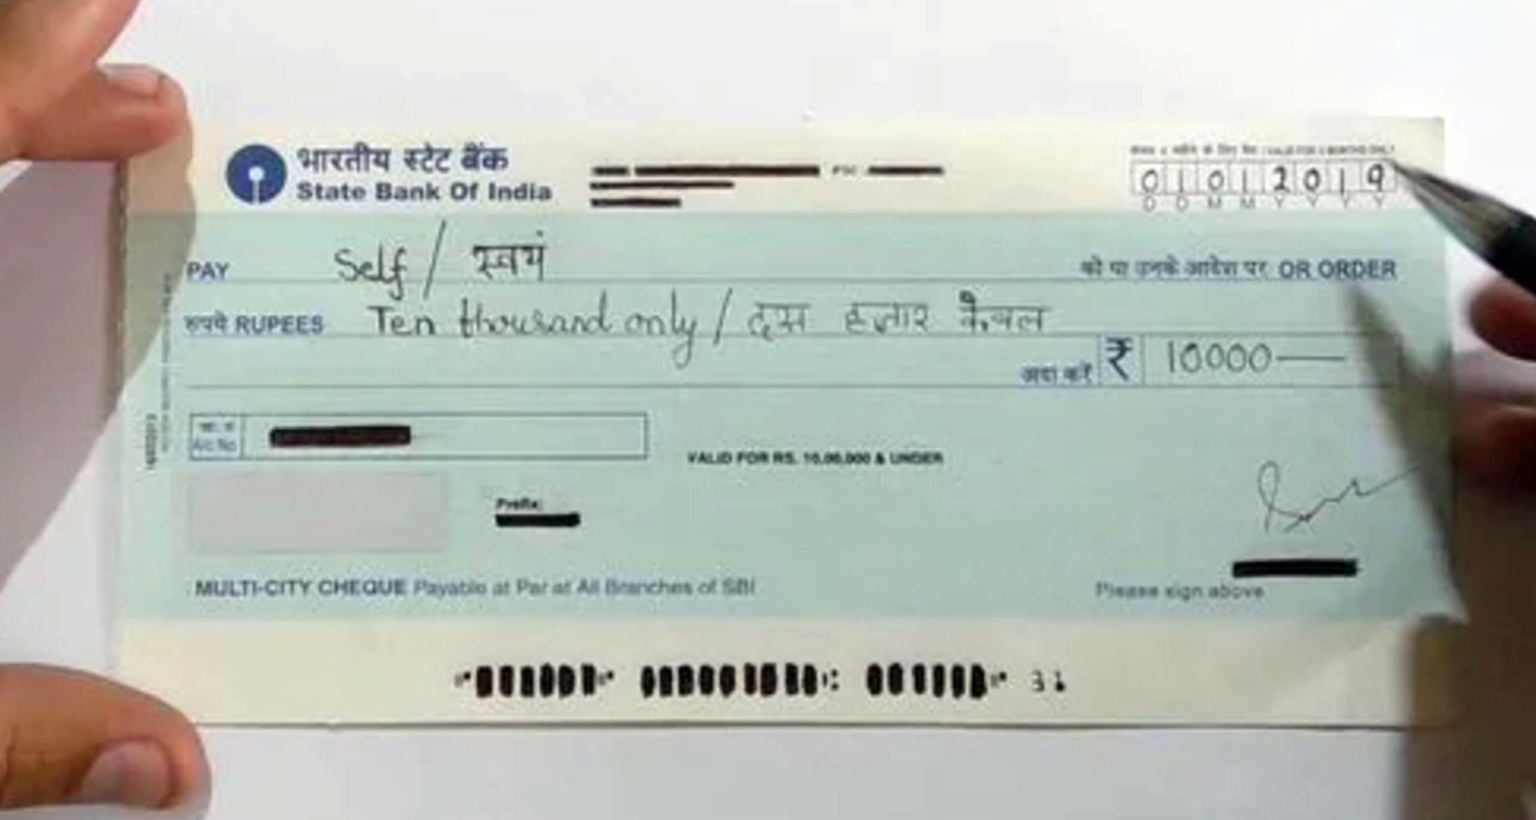 भारतीय स्टेट बैंक
State Bank Of India
VALID FOR 3 MONTHS ONLY
0 1 0 1 2 0 1 9
D D M M Y Y Y Y
PAY Self / स्वयं को या उनके आदेश पर OR ORDER
रुपये RUPEES Ten thousand only / दस हजार केवल
अदा करें ₹ 10000
A/c No.
VALID FOR RS. 10,00,000 & UNDER
Prefix:
MULTI-CITY CHEQUE Payable at Par at All Branches of SBI
Please sign above
31